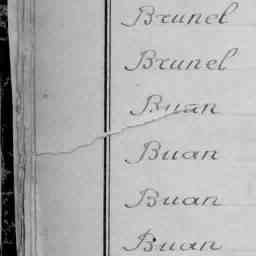 Brunel
Brunel
Buan
Buan
Buan
Buan